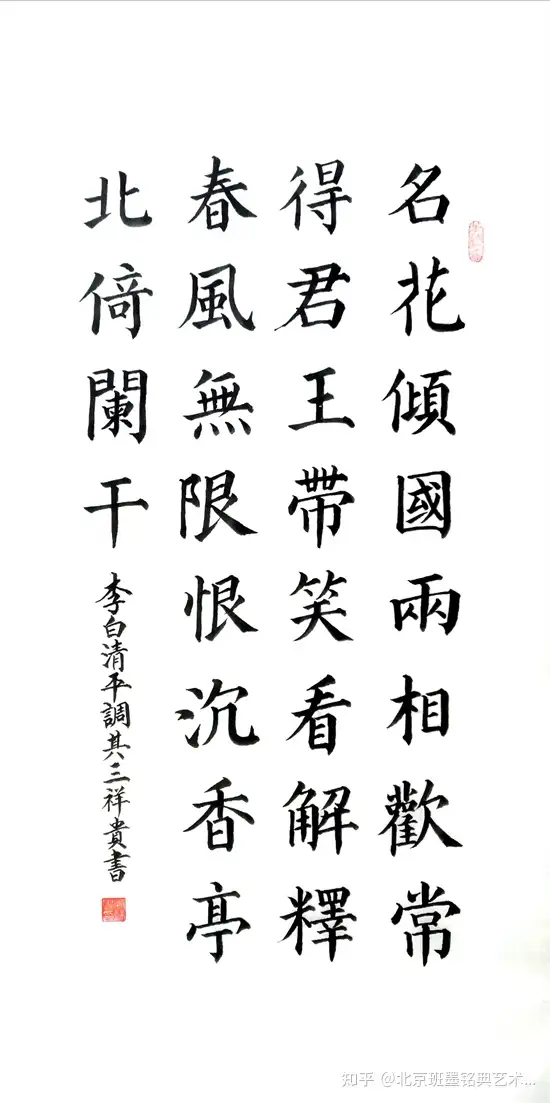 名花傾國兩相歡常
得君王帶笑看解釋
春風無限恨沉香亭
北倚闌干
李白清平調其三祥貴書
知乎 @北京班墨铭典艺术...